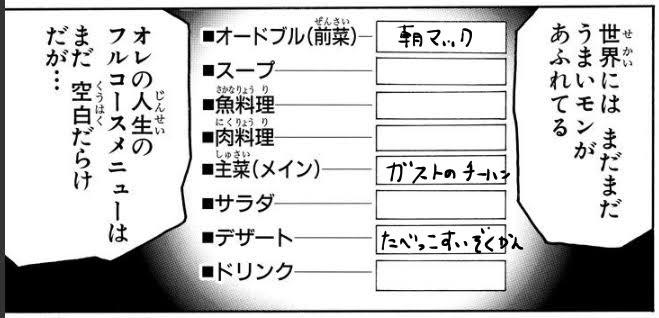 世界には まだまだ
うまいモンが
あふれてる
■オードブル(前菜) 朝マック
■スープ
■魚料理
■肉料理
■主菜(メイン) ガストのチーハン
■サラダ
■デザート たべっこすいぞくかん
■ドリンク
オレの人生の
フルコースメニューは
まだ 空白だらけ
だが…